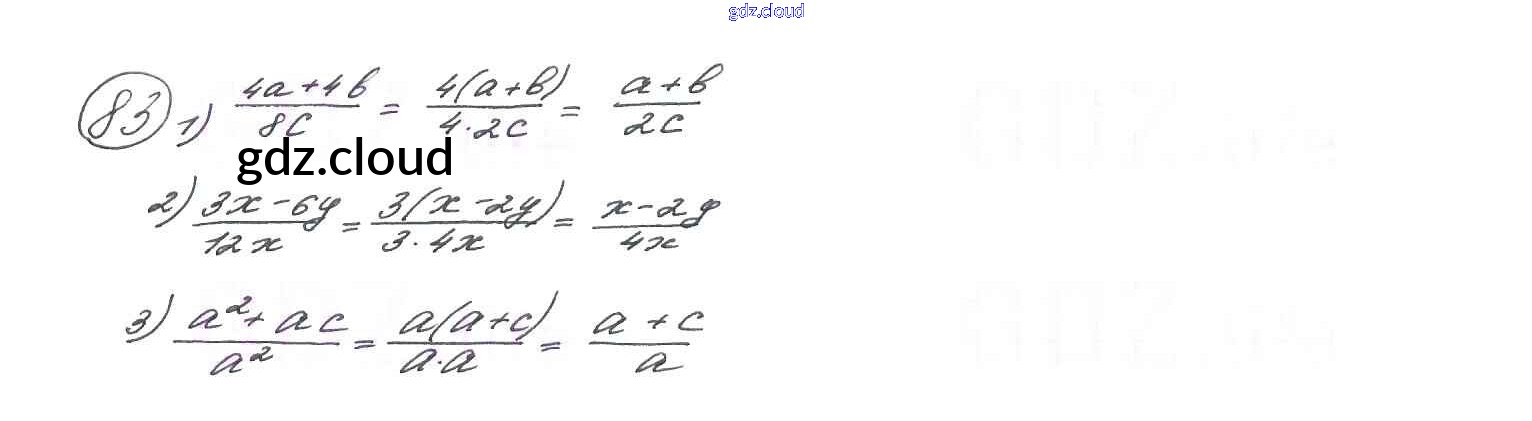 gdz.cloud
83 1) \frac{4a+4b}{8c} = \frac{4(a+b)}{4·2c} = \frac{a+b}{2c}
gdz.cloud
2) \frac{3x-6y}{12x} = \frac{3(x-2y)}{3·4x} = \frac{x-2y}{4x}
3) \frac{a^2+ac}{a^2} = \frac{a(a+c)}{a·a} = \frac{a+c}{a}